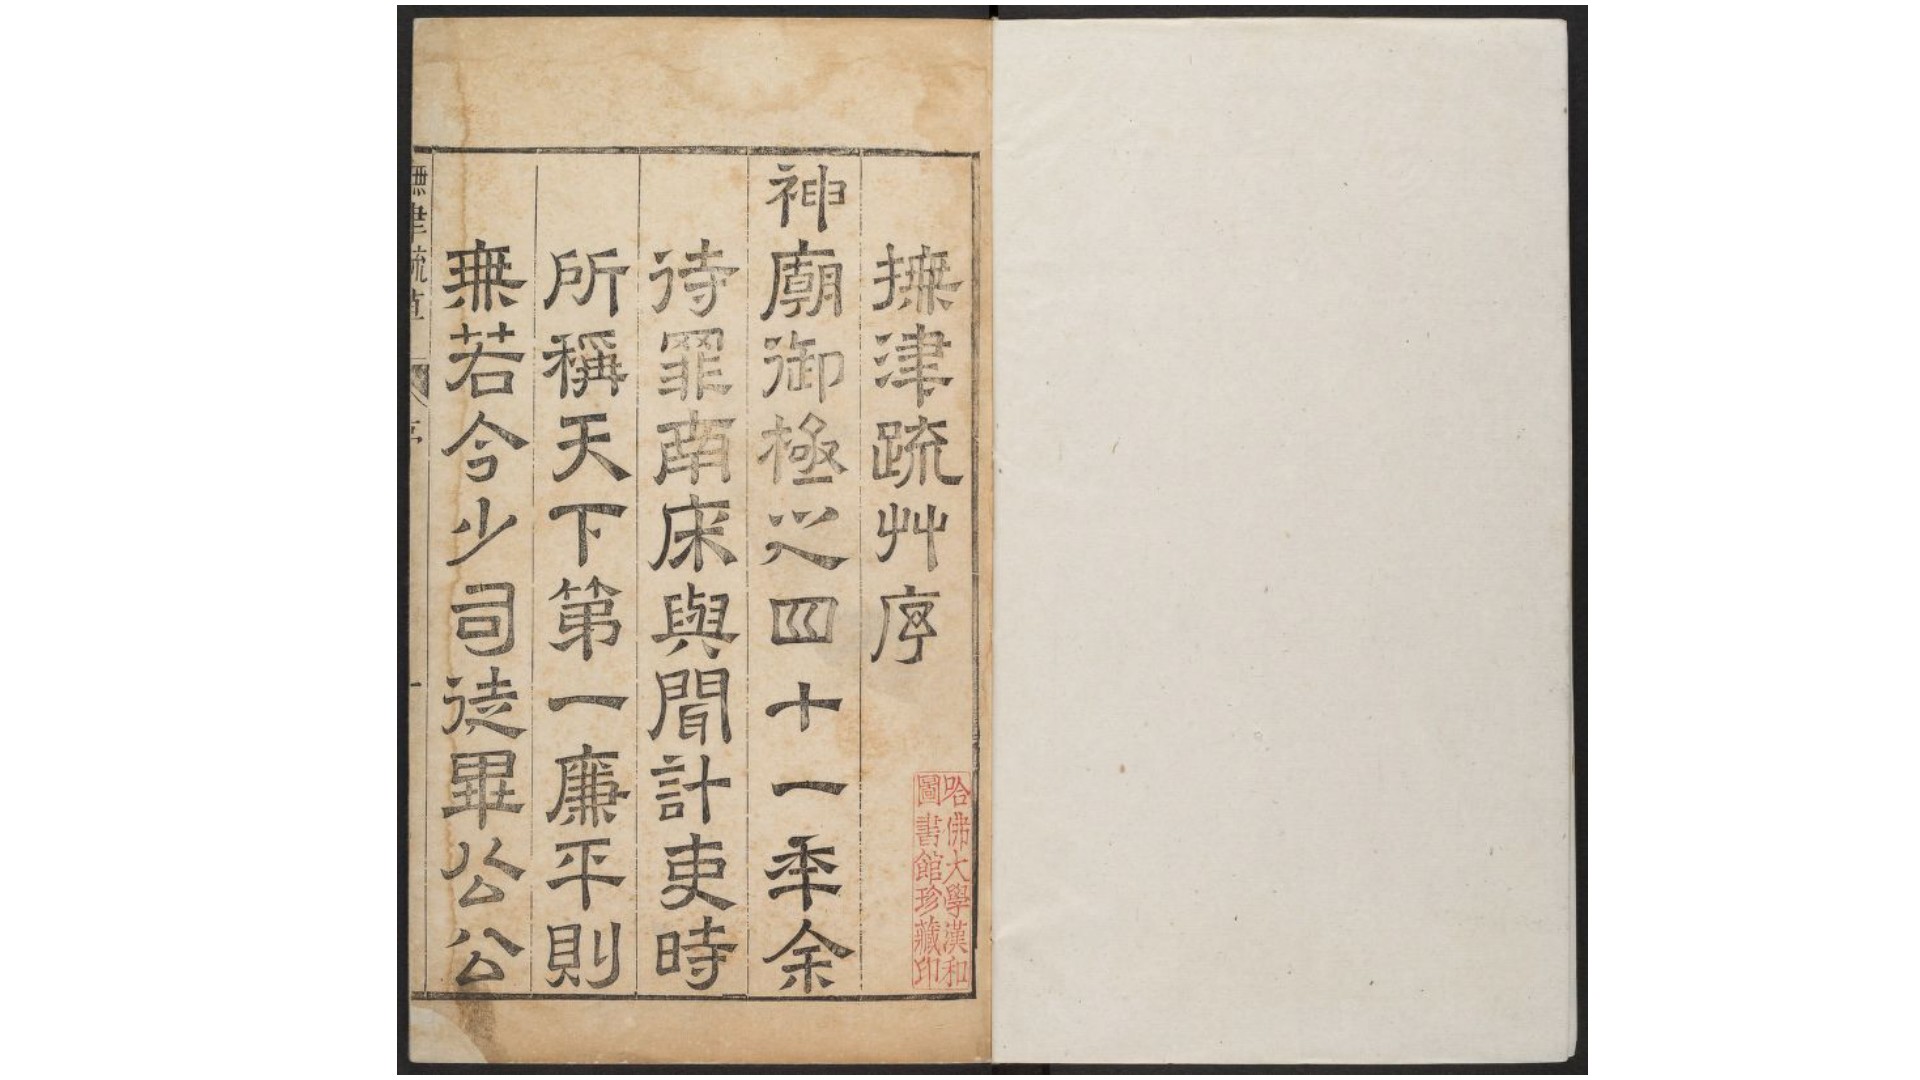 撫津疏艸序
神廟御極之四十一年余
待罪南床與聞計吏時
所稱天下第一廉平則
無若今少司徒畢公公
哈佛大學漢和
圖書館珍藏印
撫津疏草
序
一